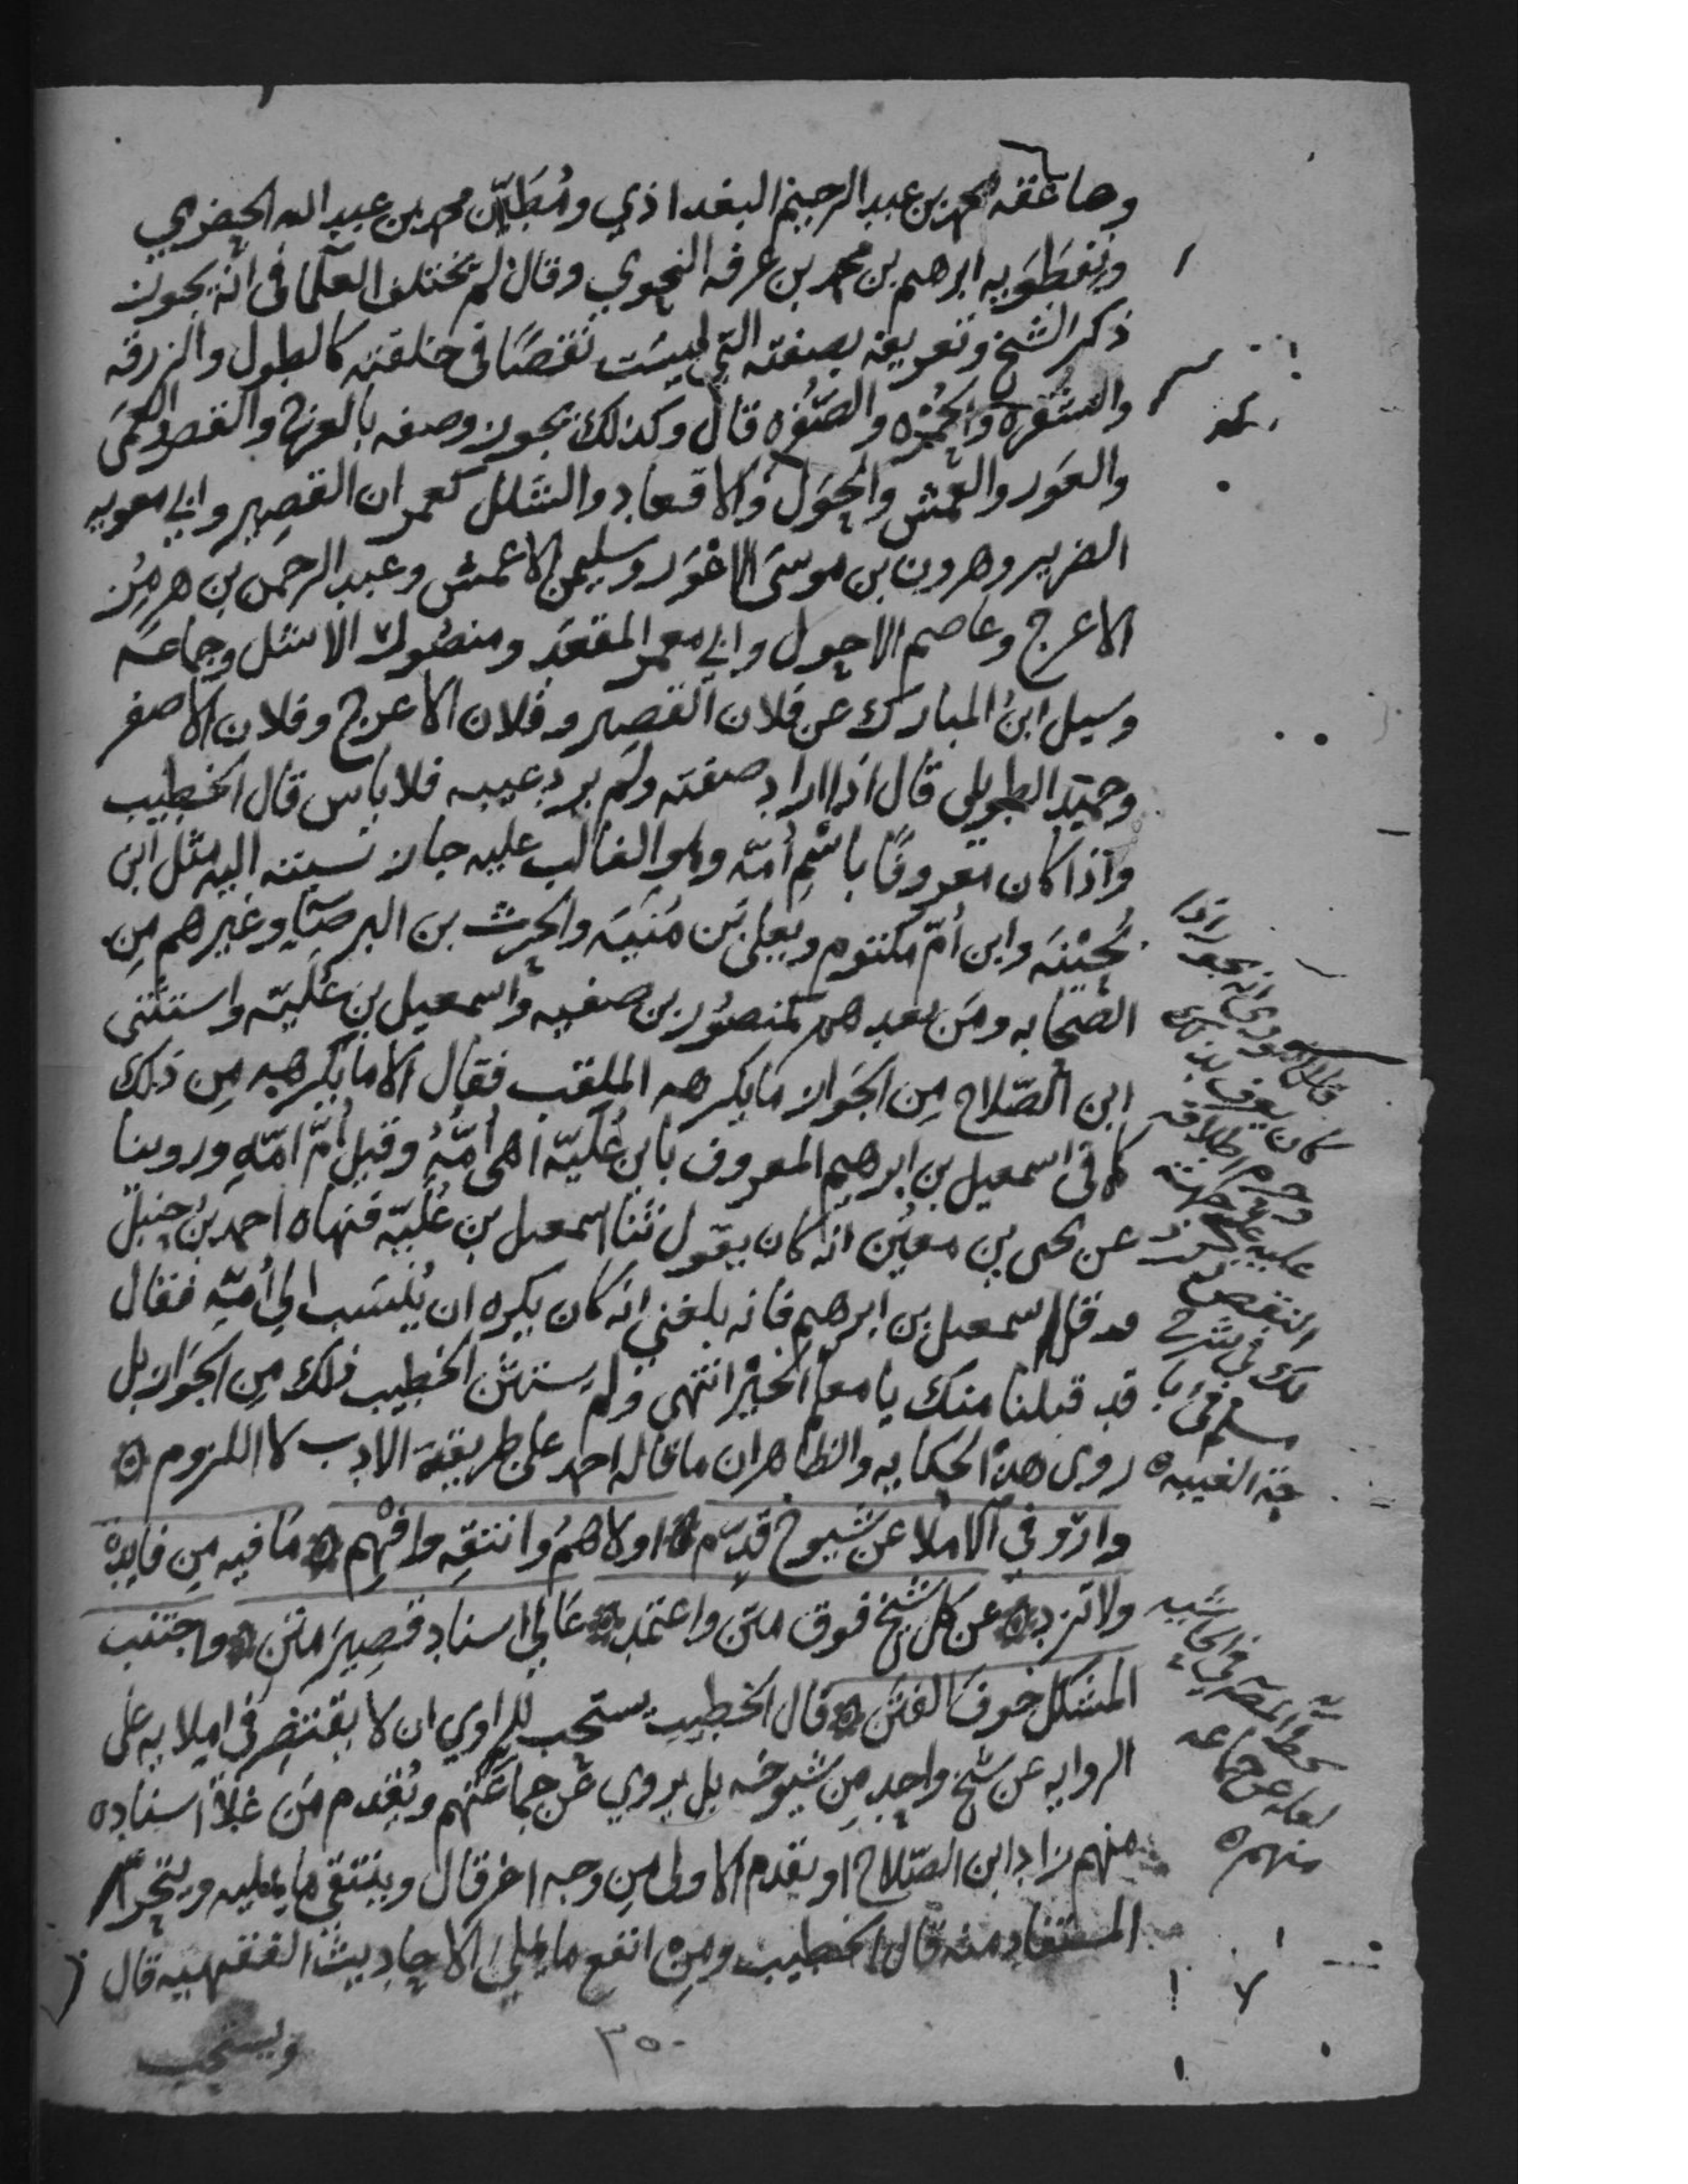 وصاعقه محمد بن عبد الرحيم البغداذي ومُطَيَّن محمد بن عبد الله الحضرمي
ونِفطَوَيه ابرهيم بن محمد بن عرفه النحوي وقال لم تختلف العلما في انه يجوز
ذكر الشيخ وتعريفه بصفته التي ليسَت نقصًا في خلقته كالطول والزرقه
والشُقره والحُمره والصُفره قال وكذلك يجوز وصفه بالعرج والقصر والعَمَى
والعَور والعَمش والحَوَل والاقعاد والشلل كعمران القصير وابي معويه
الضرير وهرون بن موسى الاعْوَر وسليمن الاعمش وعبد الرحمن بن هرمز
الاعرج وعاصم الاحول وابي معمر المقعَد ومنصُور الاشل وجماعه
وسيل ابنُ المبارك عن فلان القصير وفلان الاعرج وفلان الاصفر
وحميد الطويل قال اذا اراد صفته ولم يرد عيبه فلا باس قال الخطيب
واذا كان معروفًا باسْم اُمّه وهو الغالب عليه جاز نسبته اليه مثل ابن
بُحَيْنَه وابن اُمّ مكتوم ويعلى بن مُنيَه والحرث بن البرصَا وغيرهم مِن
الصحابه ومَن بعدهم كمنصُور بن صفيه واسمعيل بن عُليّه واستثنى
ابن الصّلاح مِن الجَواز مَا يكرهه الملقب فقال الا ما يكرهه مِن ذلك
كما في اسمعيل بن ابرهيم المعروف بابن عُليّه وهي اُمُّهُ وقيل اُمّ امّهِ وروينا
عن يحيى بن معين انه كان يقول ثنا اسمعيل بن عُليّه فنهاه احمد بن حنبل
وقال قل اسمعيل بن ابرهيم فانه بلغني انه كان يكره ان يُنسَب الى اُمّه فقال
قد قبلنا منك يا معلم الخير انتهى ولم يستثن الخطيب ذلك مِن الجواز بل
روى هذه الحكايه والظاهر ان ما قاله احمد على طريقة الادب لا اللزوم ه
وارْوِ في الاملا عن شيوخ قدّم ه اولاهمُ وانتقِه وافهم ه مَا فيه مِن فايدة
ولا تزد ه عن كل شيخ فوق متن واعتمد ه عَالي اسناد قصيرَ متن ه واجتنب
المشكل خوف الفتن ه قال الخطيب يستحب للراوي ان لا يقتصر في املايه على
الروايه عن شيخ واحد مِن شيوخه بل يروي عَن جماعَتهم ويُقدم مَن عَلا اسناده
منهم زاد ابن الصّلاح او يقدم الاولى مِن وجه اخر قال وينتقي ما يمليه ويتحرّا
المستفاد منه قال الخطيب ومِن انفع ما يملى الاحاديث الفقهيه قال
ويستحب
٣٥٠
قال النووي انه يجوز اذا
كان يعرف بذلك
وحرم اطلاقه
عليه على جهة
النقص ذكر
ذلك في شرح
مسلم في با
حة الغيبه ه
حاشيه
بخط المصنف في الحاشيه
لعله عن جماعه
منهم ه